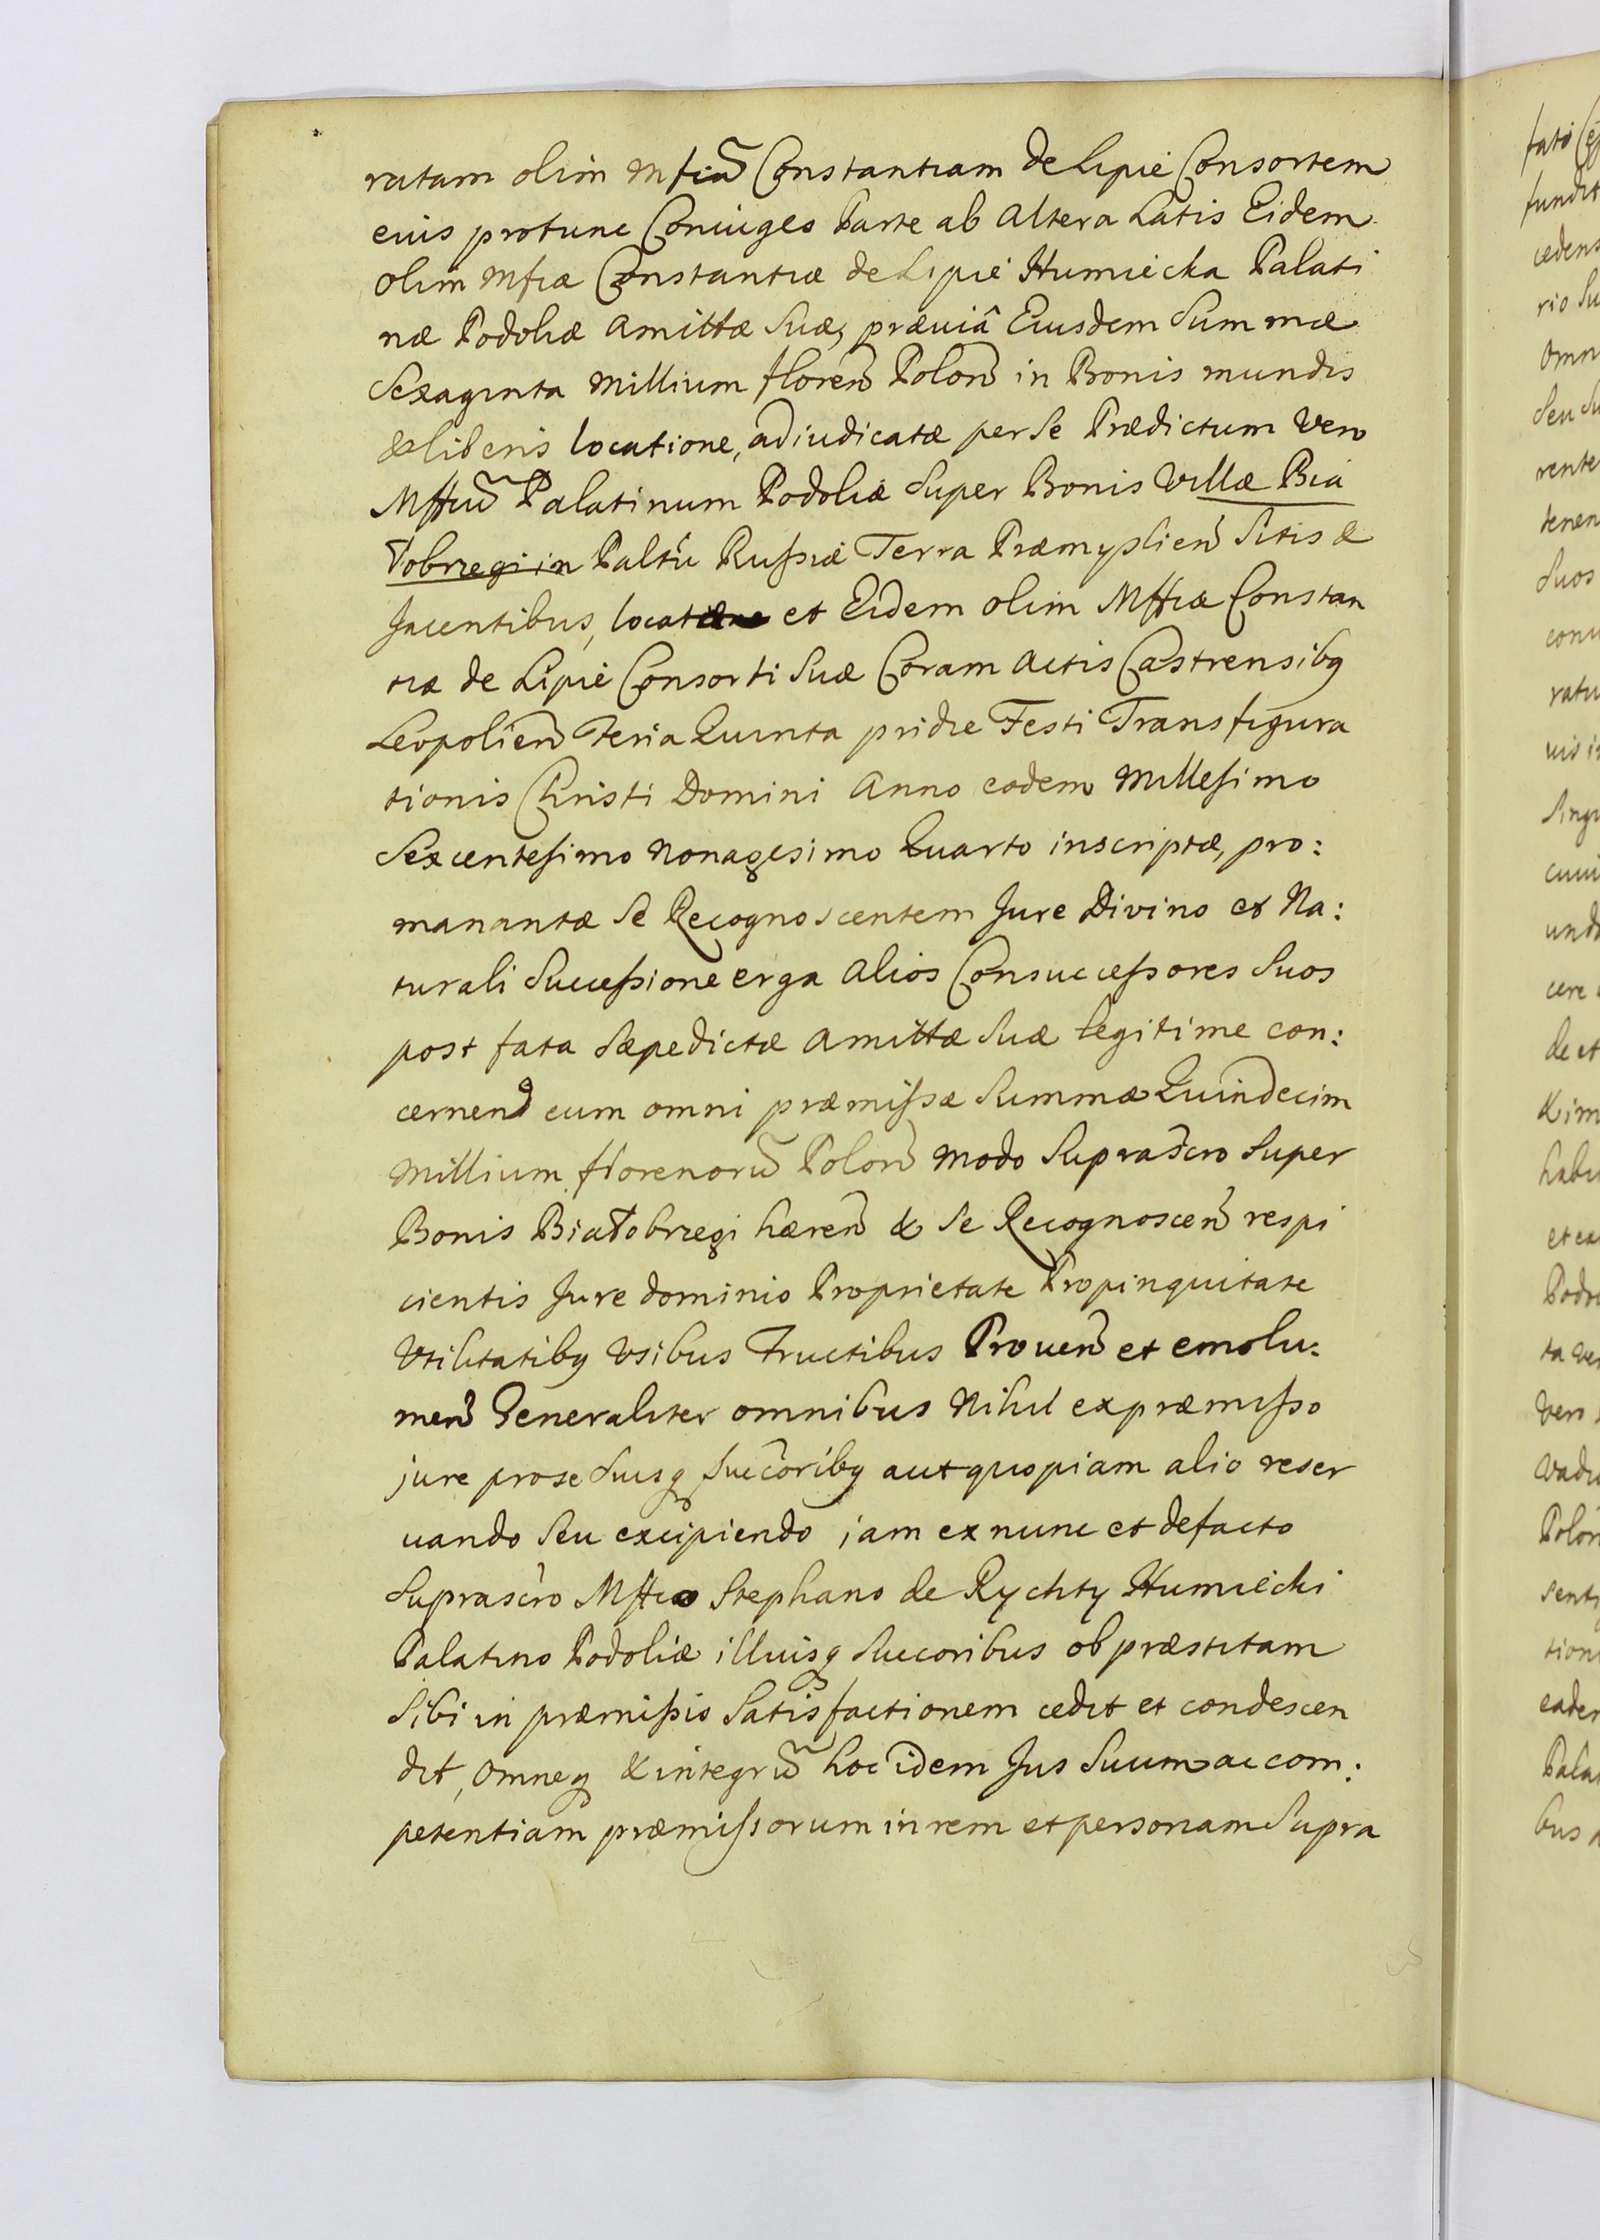 ratam olim Mfiã Constantiam de Lipie Consortem
eius protunc Coniuges Parte ab altera Latis Eidem
olim Mfiæ Constantiæ de Lipie Humiecka Palati
næ Podoliæ amittæ Suæ, præuiâ Eiusdem Summæ
Sexaginta Millium floreñ Poloñ in Bonis mundis
& liberis locatione, adiudicatæ per Se Prædictum vero
Mffiũ Palatinum Podoliæ Super Bonis Villæ Bia
łobrzegi in Paltũ Rußiæ Terra Præmyslieñ Sitis &
Jacentibus, locatæ et Eidem olim Mffiæ Constan
tiæ de Lipie Consorti Suæ Coram actis Castrensibq
Leopolieñ Feria Quinta pridie Festi Transfigura
tionis Christi Domini Anno eodem Millesimo
Sexcentesimo Nonagesimo Quarto inscriptæ, pro:
manantæ Se Recognoscentem Jure Divino et Na:
turali Sucessione erga alios Consuccessores Suos
post fata Sæpedictæ amittæ Suæ legitime con:
cernend cum omni præmißæ Summæ Quindecim
Millium florenorũ Poloñ modo Suprascro Super
Bonis Białobrzegi hæreñ & Se Recognosceñ respi
cientis Jure dominio Proprietate Propinquitate
Vtilitatibq Vsibus Fructibus Proueñ et emolu:
meñ Generaliter omnibus Nihil ex præmisso
jure pro se Suisq Succoribq aut quopiam alio reser
uando Seu excipiendo jam ex nunc et defacto
Suprascro Mffico Stephano de Rychty Humiecki
Palatino Podoliæ illuisq Succoribus ob præstitam
Sibi in præmißis Satisfactionem cedit et condescen
dit, omneq & integrũ hoc idem Jus Suum ac com:
petentiam præmissorum in rem et personam Supra